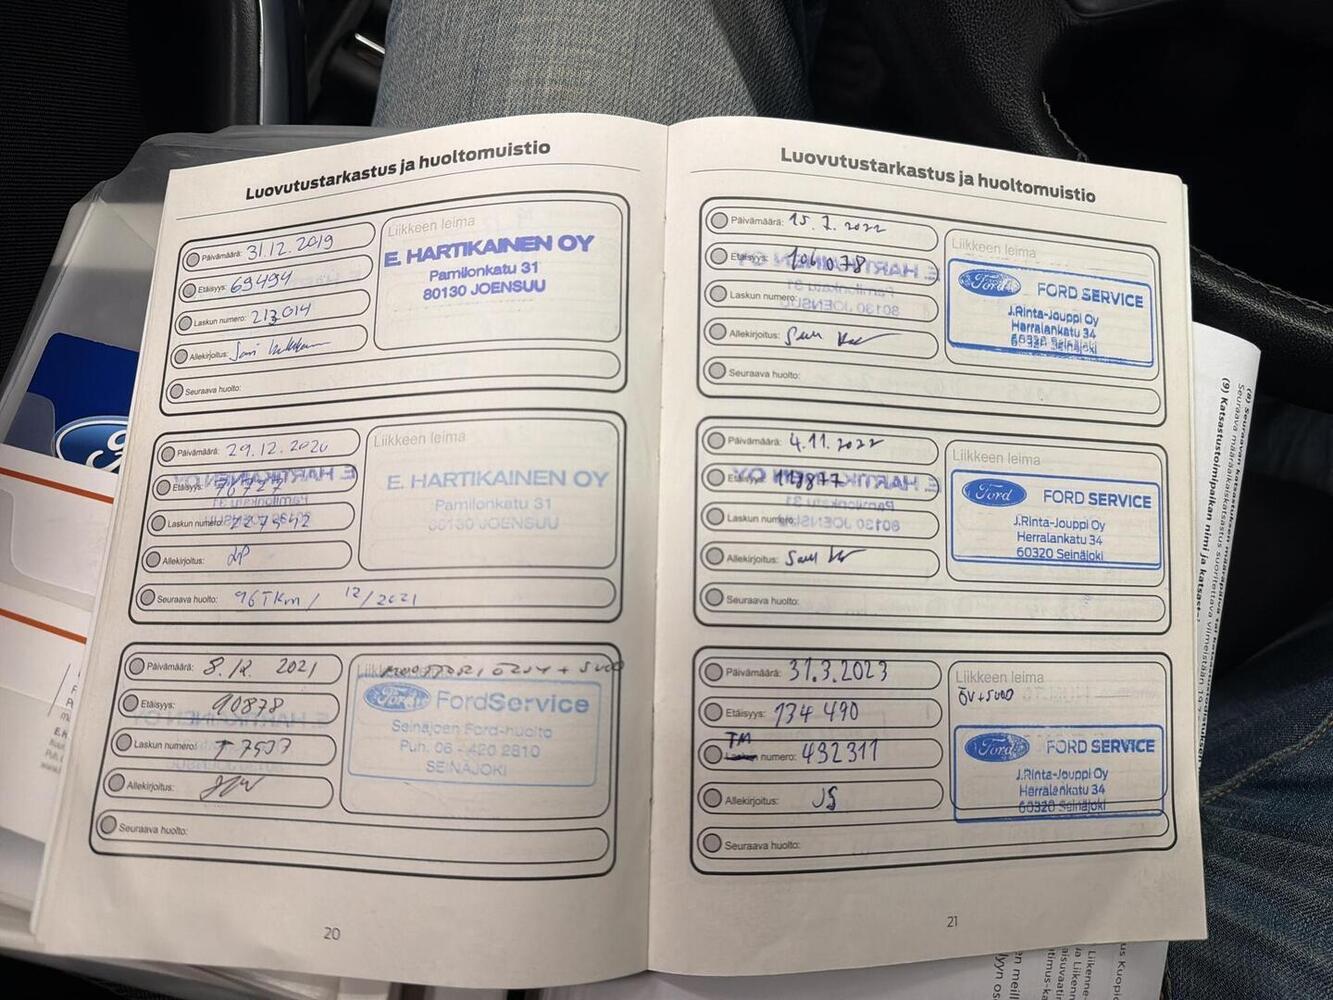 Luovutustarkastus ja huoltomuistio
Päivämäärä: 31.12.2019
Etäisyys: 69494
Laskun numero: 213014
Allekirjoitus:
Seuraava huolto:
Liikkeen leima
E. HARTIKAINEN OY
Pamilonkatu 31
80130 JOENSUU
Päivämäärä: 29.12.2020
Etäisyys:
Laskun numero:
Allekirjoitus:
Seuraava huolto: 96TKm / 12/2021
Liikkeen leima
E. HARTIKAINEN OY
Pamilonkatu 31
80130 JOENSUU
Päivämäärä: 8.12. 2021
Etäisyys: 90878
Laskun numero:
Allekirjoitus:
Seuraava huolto:
Liikkeen leima
Ford FordService
Seinäjoen Ford-huolto
Puh. 06 - 420 2810
SEINÄJOKI
20
Luovutustarkastus ja huoltomuistio
Päivämäärä: 15.7.2022
Etäisyys: 106078
Laskun numero:
Allekirjoitus:
Seuraava huolto:
Liikkeen leima
Ford FORD SERVICE
J.Rinta-Jouppi Oy
Herralankatu 34
60320 Seinäjoki
Päivämäärä: 4.11.2022
Etäisyys:
Laskun numero:
Allekirjoitus:
Seuraava huolto:
Liikkeen leima
Ford FORD SERVICE
J.Rinta-Jouppi Oy
Herralankatu 34
60320 Seinäjoki
Päivämäärä: 31.3.2023
Etäisyys: 134 490
TM
Laskun numero: 432311
Allekirjoitus: JS
Seuraava huolto:
Liikkeen leima
ÖV+SUOD
Ford FORD SERVICE
J.Rinta-Jouppi Oy
Herralankatu 34
60320 Seinäjoki
21